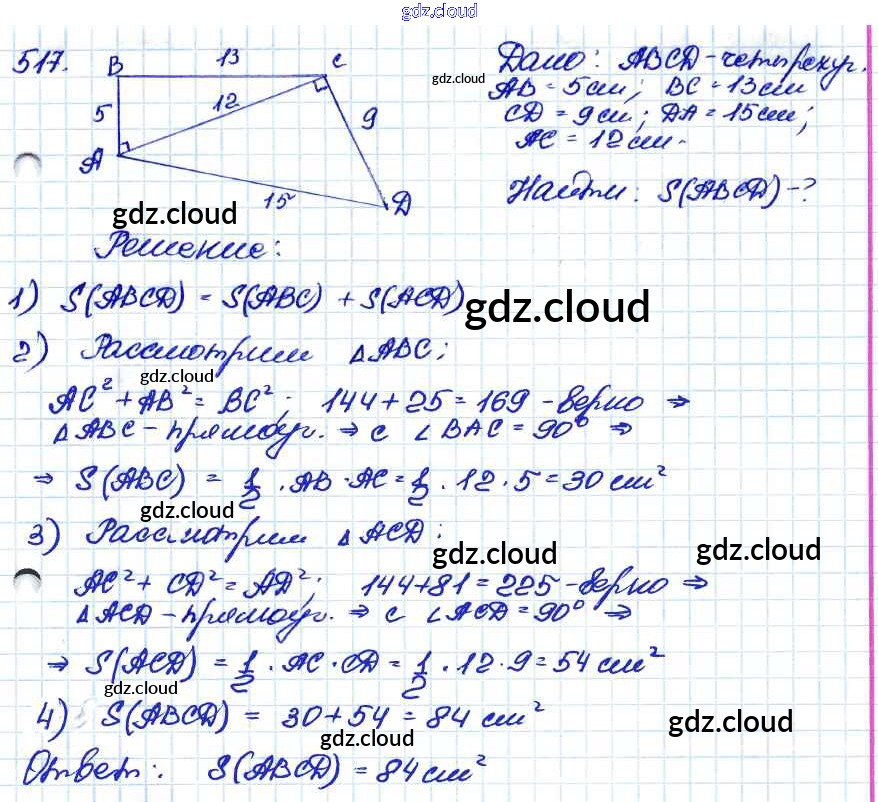 gdz.cloud
517.
B 13 C
5 12 9
A 15 D
Дано: ABCD-четырехуг.
AB = 5см; BC = 13см
CD = 9см; DA = 15см;
AC = 12см.
Найти: S(ABCD)-?
gdz.cloud
gdz.cloud
Решение:
1) S(ABCD) = S(ABC) + S(ACD)
gdz.cloud
2) Рассмотрим △ABC;
gdz.cloud
AC² + AB² = BC²; 144 + 25 = 169 - верно ⇒
△ABC - прямоуг. ⇒ с ∠BAC = 90° ⇒
⇒ S(ABC) = 1/2 · AB · AC = 1/2 · 12 · 5 = 30 см²
gdz.cloud
3) Рассмотрим △ACD:
gdz.cloud
gdz.cloud
AC² + CD² = AD²; 144+81 = 225 - верно ⇒
△ACD - прямоуг. ⇒ с ∠ACD = 90° ⇒
⇒ S(ACD) = 1/2 · AC · CD = 1/2 · 12 · 9 = 54 см²
gdz.cloud
4) S(ABCD) = 30 + 54 = 84 см²
gdz.cloud
gdz.cloud
Ответ: S(ABCD) = 84 см²